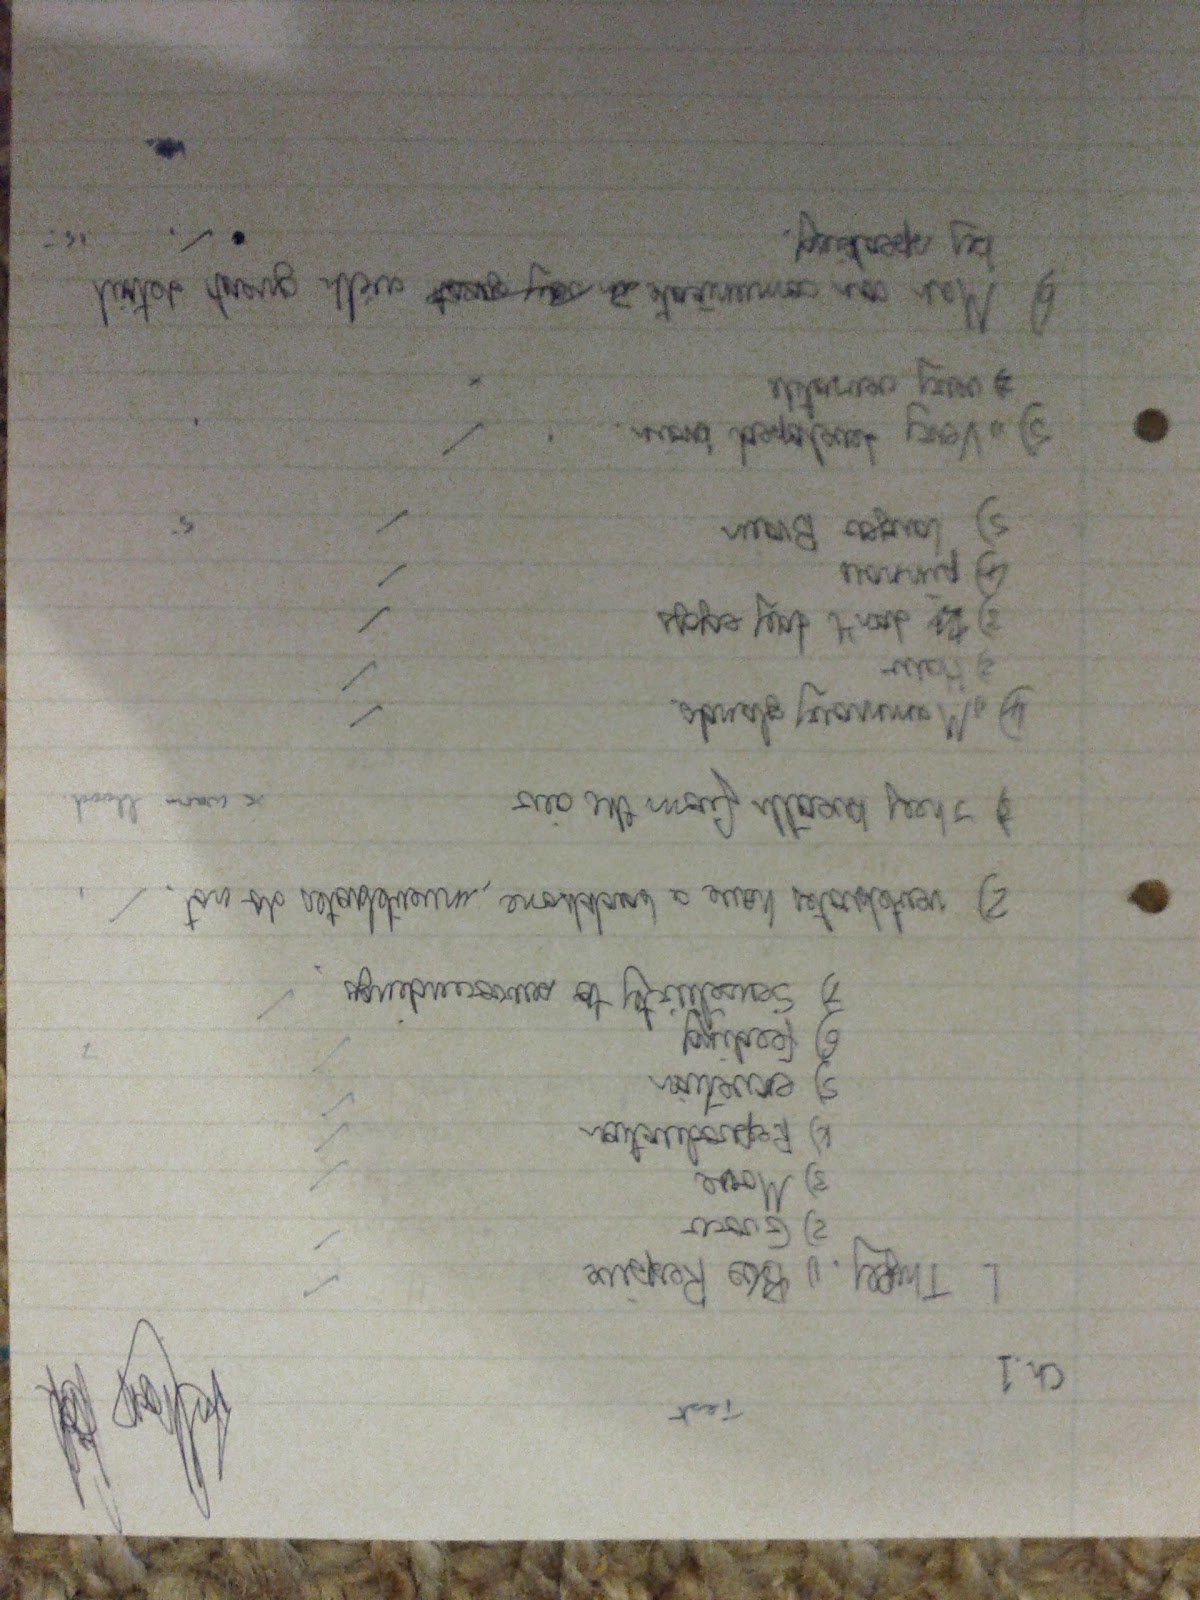 Test
Ch. 1
1. They: 1) Respire ✓
2) Grow ✓
3) Move ✓
4) Reproduction ✓
5) excretion ✓
6) feeding ✓ 7
7) Sensitivity to surroundings ✓
2) vertebrates have a backbone, invertebrates do not. ✓
3) They breath from the air x warm blood
4) 1) Mammary glands ✓
2) Hair ✓
3) don't lay eggs ✓
4) pinnae ✓
5) larger Brain ✓ 5
5) 1) Very developed brain ✓
2) very versatile
6) Man can communicate with great detail
by speaking. ✓